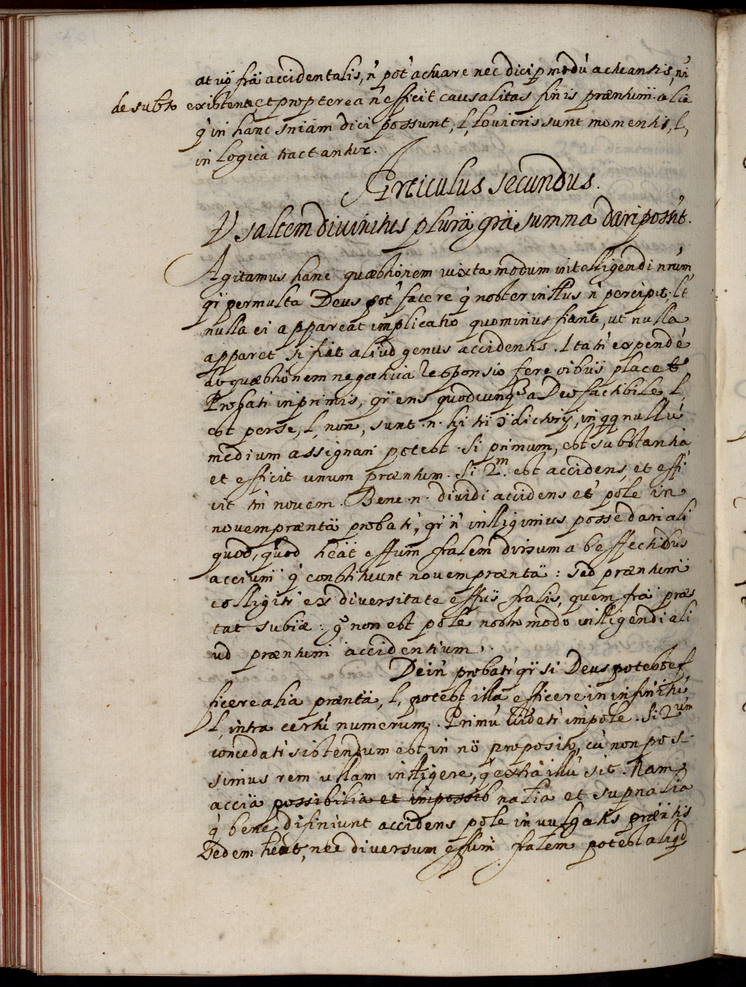 at vo fra accidentalis, n pot actuare nec dici p modu actuantis, ni
de subto existente, et propterea n efficit causalitas finis præntum. alia
q in hanc sniam dici possunt, l, leuioris sunt momenti, l,
in Logica tractantur.
Articulus secundus.
V saltem diuinitus plura gra summa dari possit.
Agitamus hanc quæstionem iuxta modum intelligendi nrum
qr permulta Deus pot facere q noster intllus n percipit; et
nulla ei appareat implicatio quominus fiant, ut nulla
apparet si fiat aliud genus accidentis. Ita ti expende
do quæstionem negatiua responsio fere oibus placet
Probati in primis, qr ens quodcunq a Deo factibile l,
est per se, l, non, sunt .n. hi tri dictorij, in qq nullu
medium assignari potest. Si primum, est substantia
et efficit unum præntum. Si 2m. est accidens, et effi
cit tn nouem. Bene .n. diuidi accidens et pole in
nouem prænta probati, qr n intlligimus posse dari ali
quod, quod heat effum fralem diuisum ab effectibus
accium q constituunt nouem prænta: sed præntum
colligiti ex diversitate effus fralis, quem fra præs
tat subiæ: q non est pole nostro modo intlligendi ali
ud præntum accidentium.
Dein probati qr si Deus potest ef
ficere alia prænta, l, potest illa efficere in infinitu,
l, intra certu numerum. Primu uideti impole. Si 2um
concedati sistendum est in no proposito, cu non pos-
simus rem ullam intlligere, q extra illu sit. Nam
accia possibilia et impossib natia et supnatia
q bene difiniunt accidens pole in uulgatis præntis
Sedem heat, nec diuersum effum fralem potest aliqd